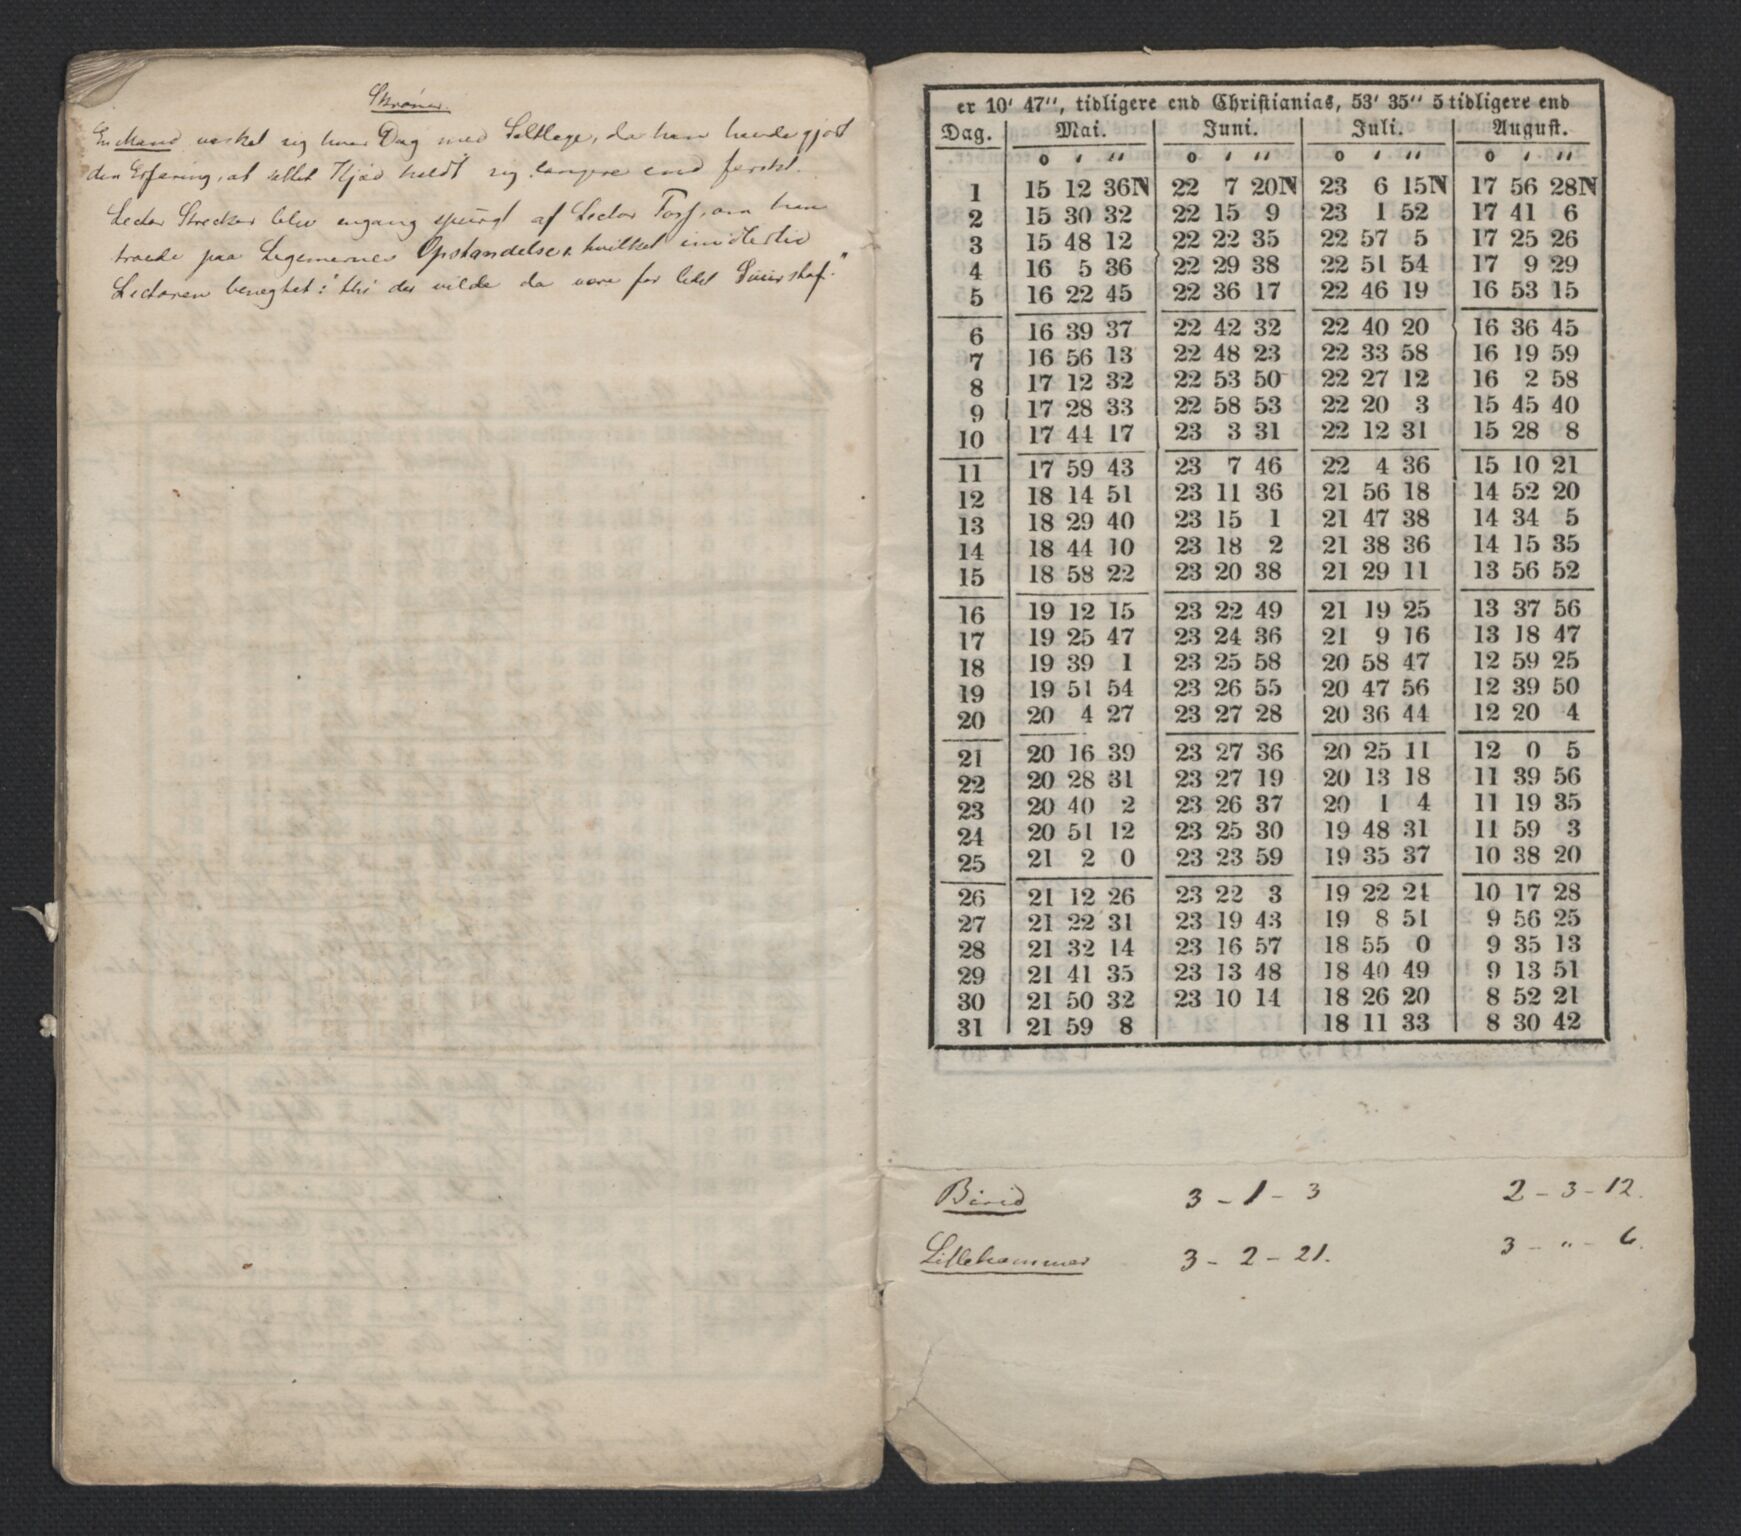 Skrøner.
En Mand vasket sig hver Dag med Saltlage, da han havde gjort
den Erfaring, at saltet Kjød holdt sig længere end fersk.
Lector Strecker blev engang spurgt af Lector Torf, om han
troede paa Legemernes Opstandelse, hvilket imidlertid
Lectoren benegtet: "thi der vilde da være for lidet
er 10' 47", tidligere end Christianias, 53' 35" 5 tidligere end
Dag. Mai. Juni. Juli. August.
o ' " o ' " o ' " o ' "
1 15 12 36N 22 7 20N 23 6 15N 17 56 28N
2 15 30 32 22 15 9 23 1 52 17 41 6
3 15 48 12 22 22 35 22 57 5 17 25 26
4 16 5 36 22 29 38 22 51 54 17 9 29
5 16 22 45 22 36 17 22 46 19 16 53 15
6 16 39 37 22 42 32 22 40 20 16 36 45
7 16 56 13 22 48 23 22 33 58 16 19 59
8 17 12 32 22 53 50 22 27 12 16 2 58
9 17 28 33 22 58 53 22 20 3 15 45 40
10 17 44 17 23 3 31 22 12 31 15 28 8
11 17 59 43 23 7 46 22 4 36 15 10 21
12 18 14 51 23 11 36 21 56 18 14 52 20
13 18 29 40 23 15 1 21 47 38 14 34 5
14 18 44 10 23 18 2 21 38 36 14 15 35
15 18 58 22 23 20 38 21 29 11 13 56 52
16 19 12 15 23 22 49 21 19 25 13 37 56
17 19 25 47 23 24 36 21 9 16 13 18 47
18 19 39 1 23 25 58 20 58 47 12 59 25
19 19 51 54 23 26 55 20 47 56 12 39 50
20 20 4 27 23 27 28 20 36 44 12 20 4
21 20 16 39 23 27 36 20 25 11 12 0 5
22 20 28 31 23 27 19 20 13 18 11 39 56
23 20 40 2 23 26 37 20 1 4 11 19 35
24 20 51 12 23 25 30 19 48 31 11 59 3
25 21 2 0 23 23 59 19 35 37 10 38 20
26 21 12 26 23 22 3 19 22 24 10 17 28
27 21 22 31 23 19 43 19 8 51 9 56 25
28 21 32 14 23 16 57 18 55 0 9 35 13
29 21 41 35 23 13 48 18 40 49 9 13 51
30 21 50 32 23 10 14 18 26 20 8 52 21
31 21 59 8 18 11 33 8 30 42
Birid 3 - 1 - 3 2 - 3 - 12.
Lillehammer 3 - 2 - 21. 3 - " - 6.